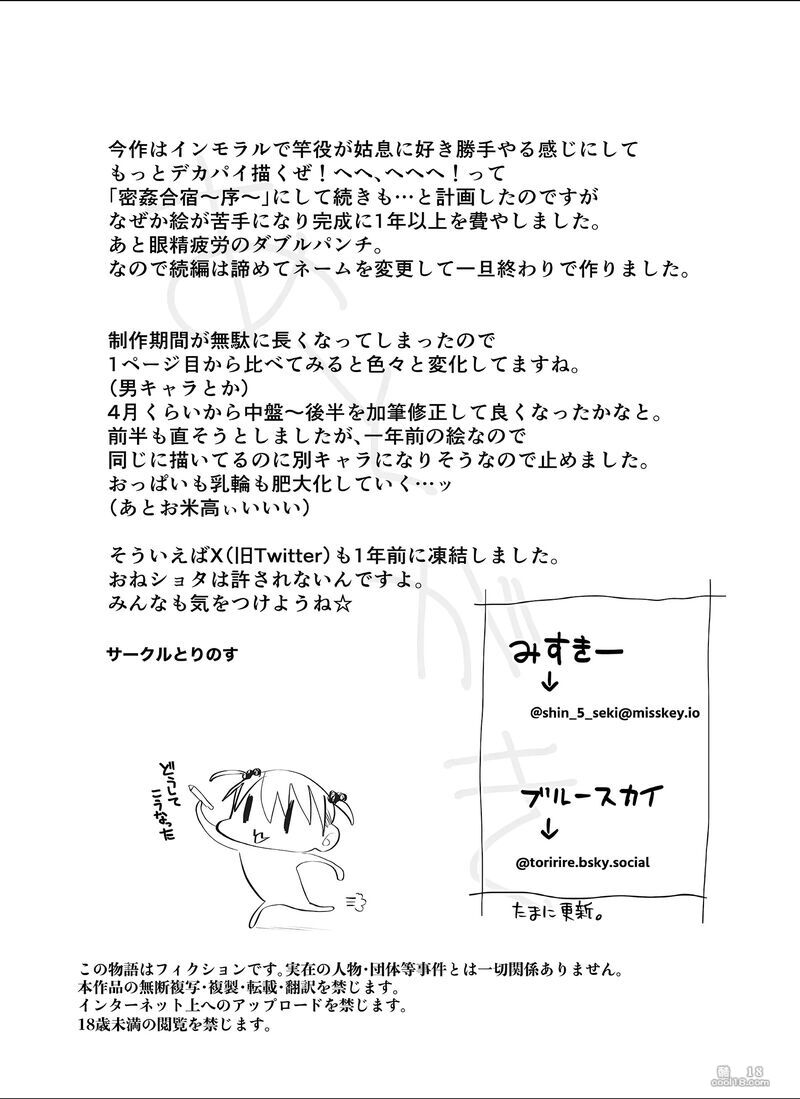 あとがき
今作はインモラルで竿役が姑息に好き勝手やる感じにして
もっとデカパイ描くぜ！へへ、へへへ！って
「密姦合宿～序～」にして続きも…と計画したのですが
なぜか絵が苦手になり完成に1年以上を費やしました。
あと眼精疲労のダブルパンチ。
なので続編は諦めてネームを変更して一旦終わりで作りました。
制作期間が無駄に長くなってしまったので
1ページ目から比べてみると色々と変化してますね。
（男キャラとか）
4月くらいから中盤～後半を加筆修正して良くなったかなと。
前半も直そうとしましたが、一年前の絵なので
同じに描いてるのに別キャラになりそうなので止めました。
おっぱいも乳輪も肥大化していく…ッ
（あとお米高ぃいいい）
そういえばX（旧Twitter）も1年前に凍結しました。
おねショタは許されないんですよ。
みんなも気をつけようね☆
サークルとりのす
みすきー
↓
@shin_5_seki@misskey.io
ブルースカイ
↓
@toririre.bsky.social
たまに更新。
どうして
こうなった
この物語はフィクションです。実在の人物・団体等事件とは一切関係ありません。
本作品の無断複写・複製・転載・翻訳を禁じます。
インターネット上へのアップロードを禁じます。
18歳未満の閲覧を禁じます。
酷 18
cool18.com